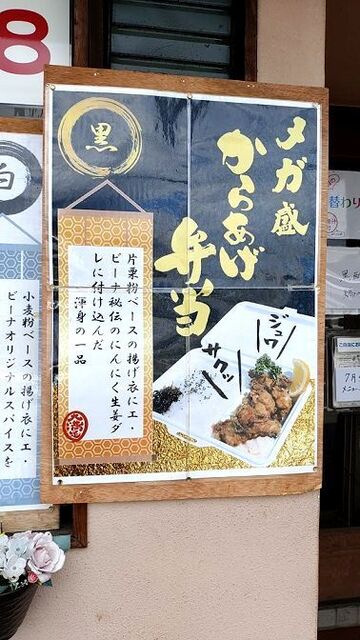 8
黒
メガ盛
からあげ
弁当
片栗粉ベースの揚げ衣にエ・
ピーナ秘伝のにんにく生姜ダ
レに付け込んだ
渾身の一品
ジュワッ
サクッ
白
小麦粉ベースの揚げ衣にエ・
ピーナオリジナルスパイスを
替わり